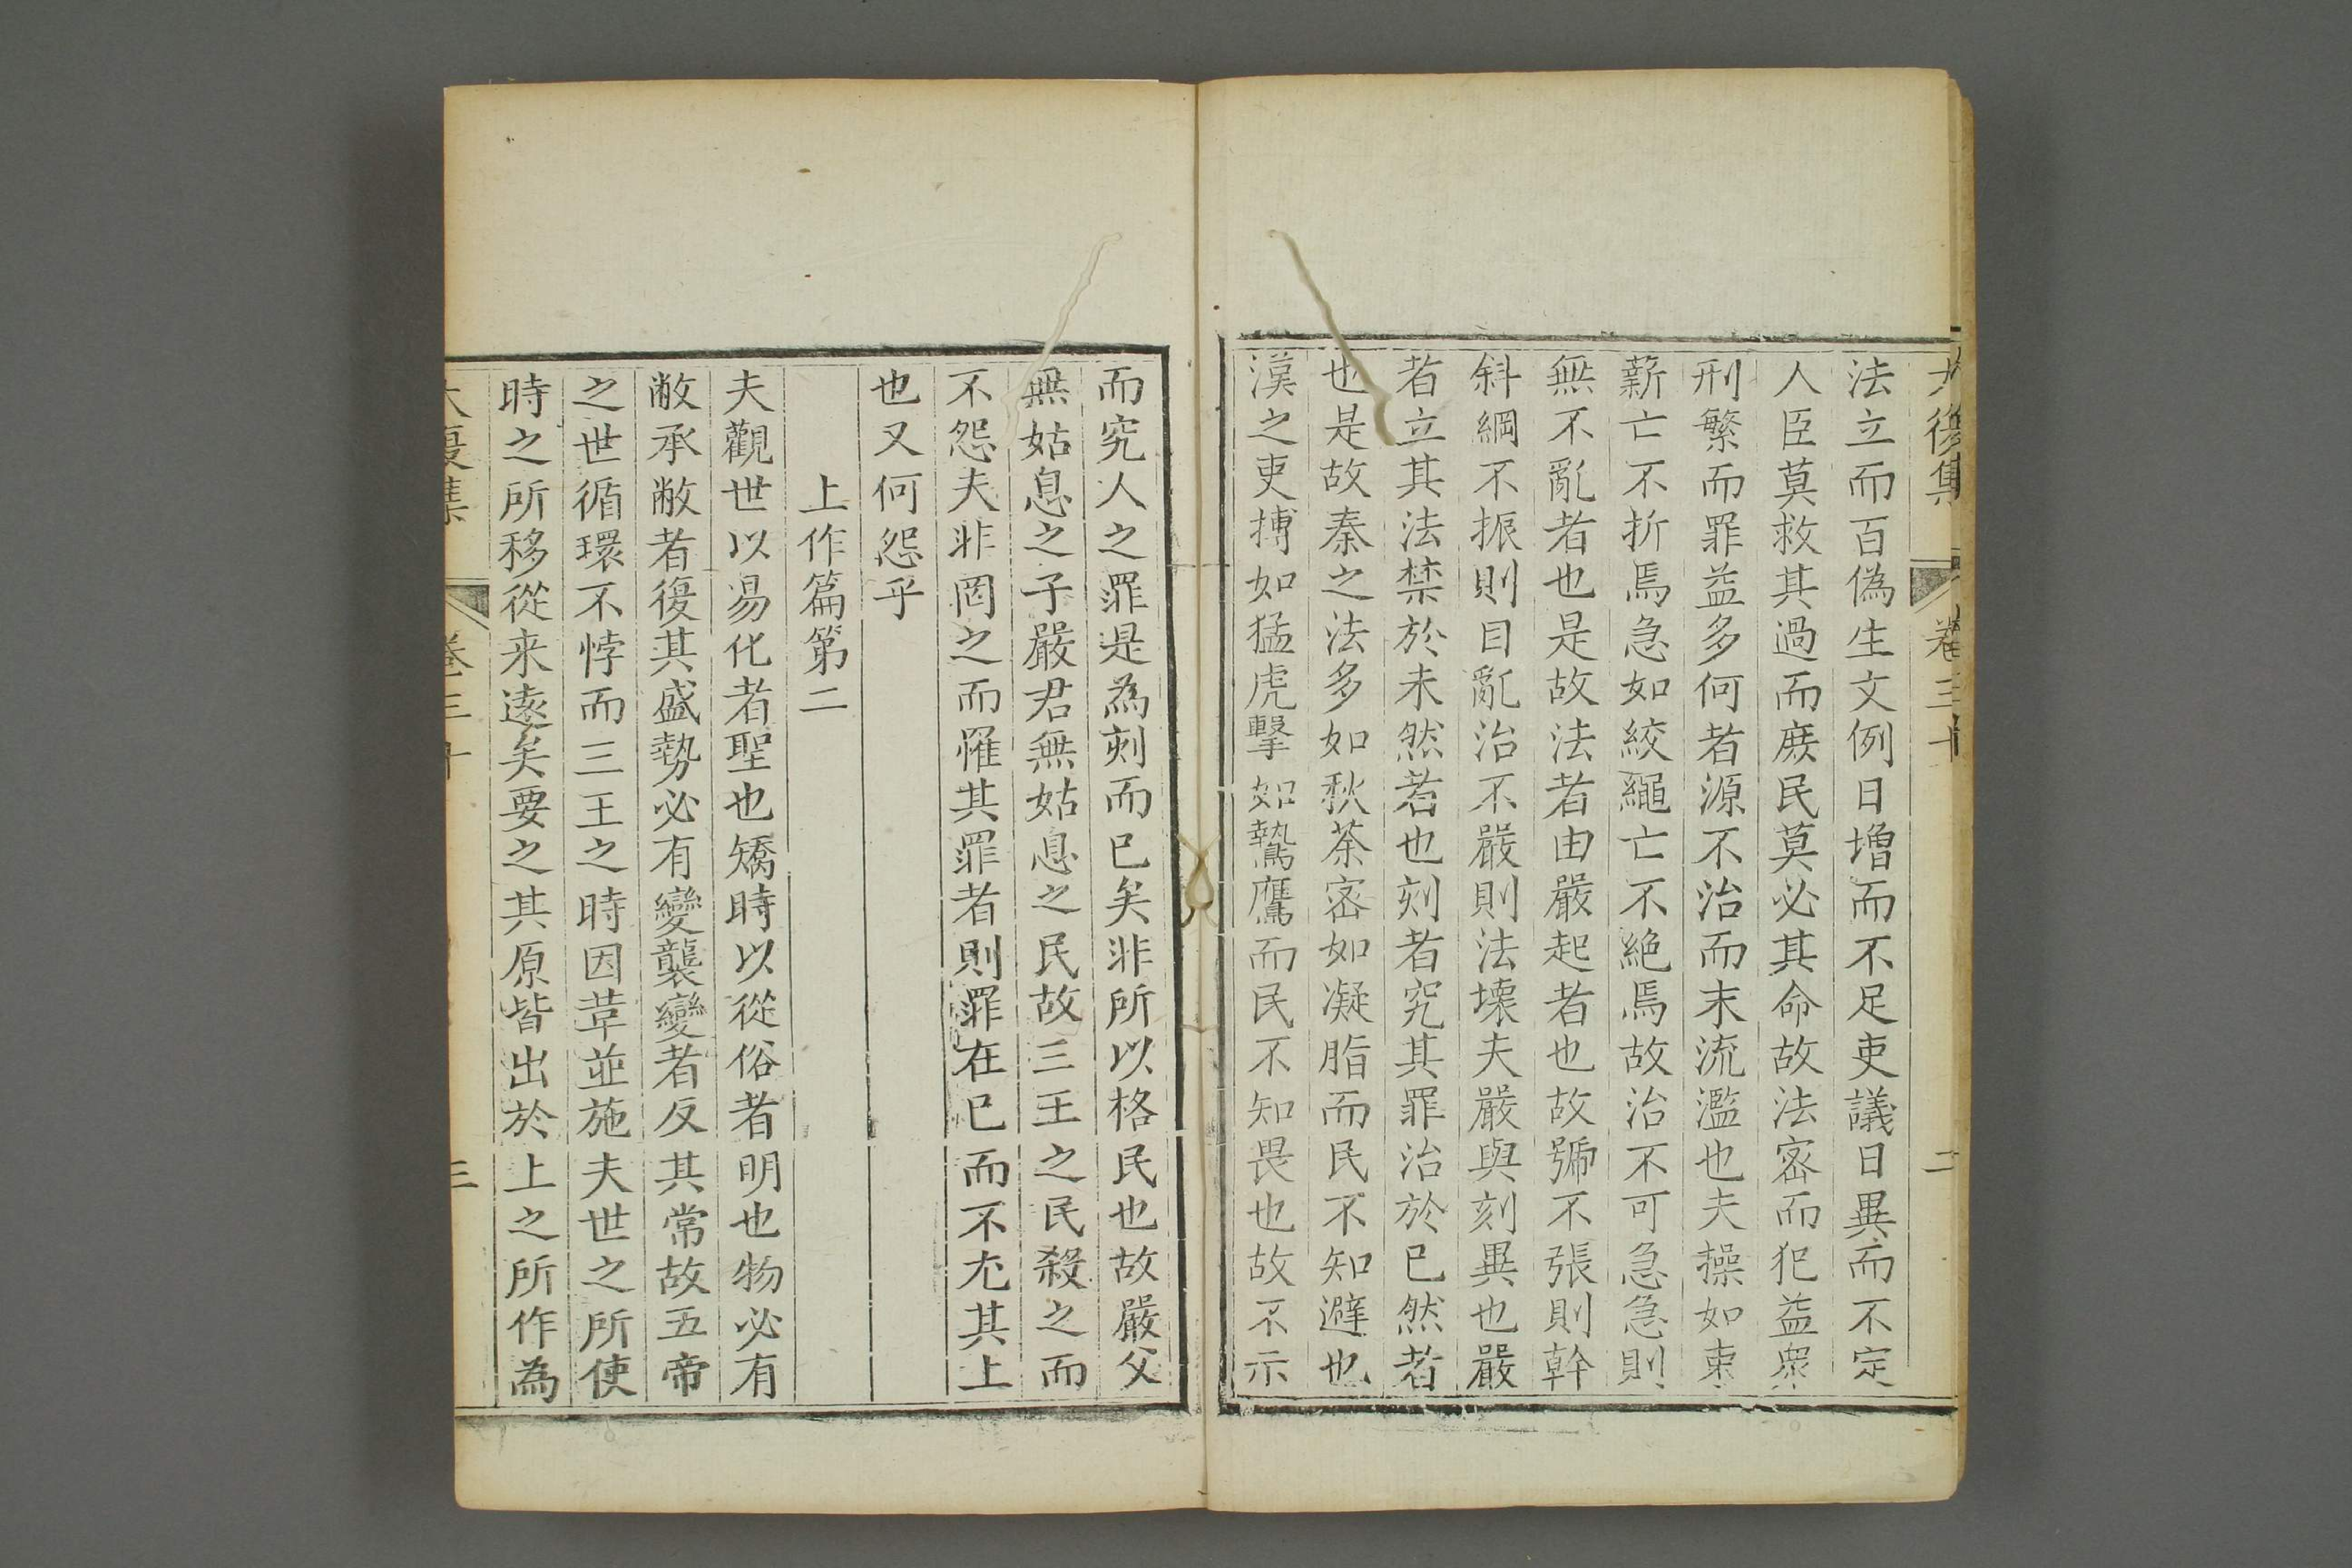 大復集 卷三十 二
法立而百偽生文例日增而不足吏議日異而不定
人臣莫救其過而庶民莫必其命故法密而犯益衆
刑繁而罪益多何者源不治而末流濫也夫操如束
薪亡不折焉急如絞繩亡不絕焉故治不可急急則
無不亂者也是故法者由嚴起者也故號不張則幹
斜綱不振則目亂治不嚴則法壞夫嚴與刻異也嚴
者立其法禁於未然者也刻者究其罪治於已然者
也是故秦之法多如秋荼密如凝脂而民不知避也
漢之吏搏如猛虎擊如鷙鷹而民不知畏也故不示
而究人之罪是為刻而已矣非所以格民也故嚴父
無姑息之子嚴君無姑息之民故三王之民殺之而
不怨夫非罔之而罹其罪者則罪在已而不尤其上
也又何怨乎
上作篇第二
夫觀世以易化者聖也矯時以從俗者明也物必有
敝承敝者復其盛勢必有變襲變者反其常故五帝
之世循環不悖而三王之時因革並施夫世之所使
時之所移從来遠矣要之其原皆出於上之所作為
大復集 卷三十 三